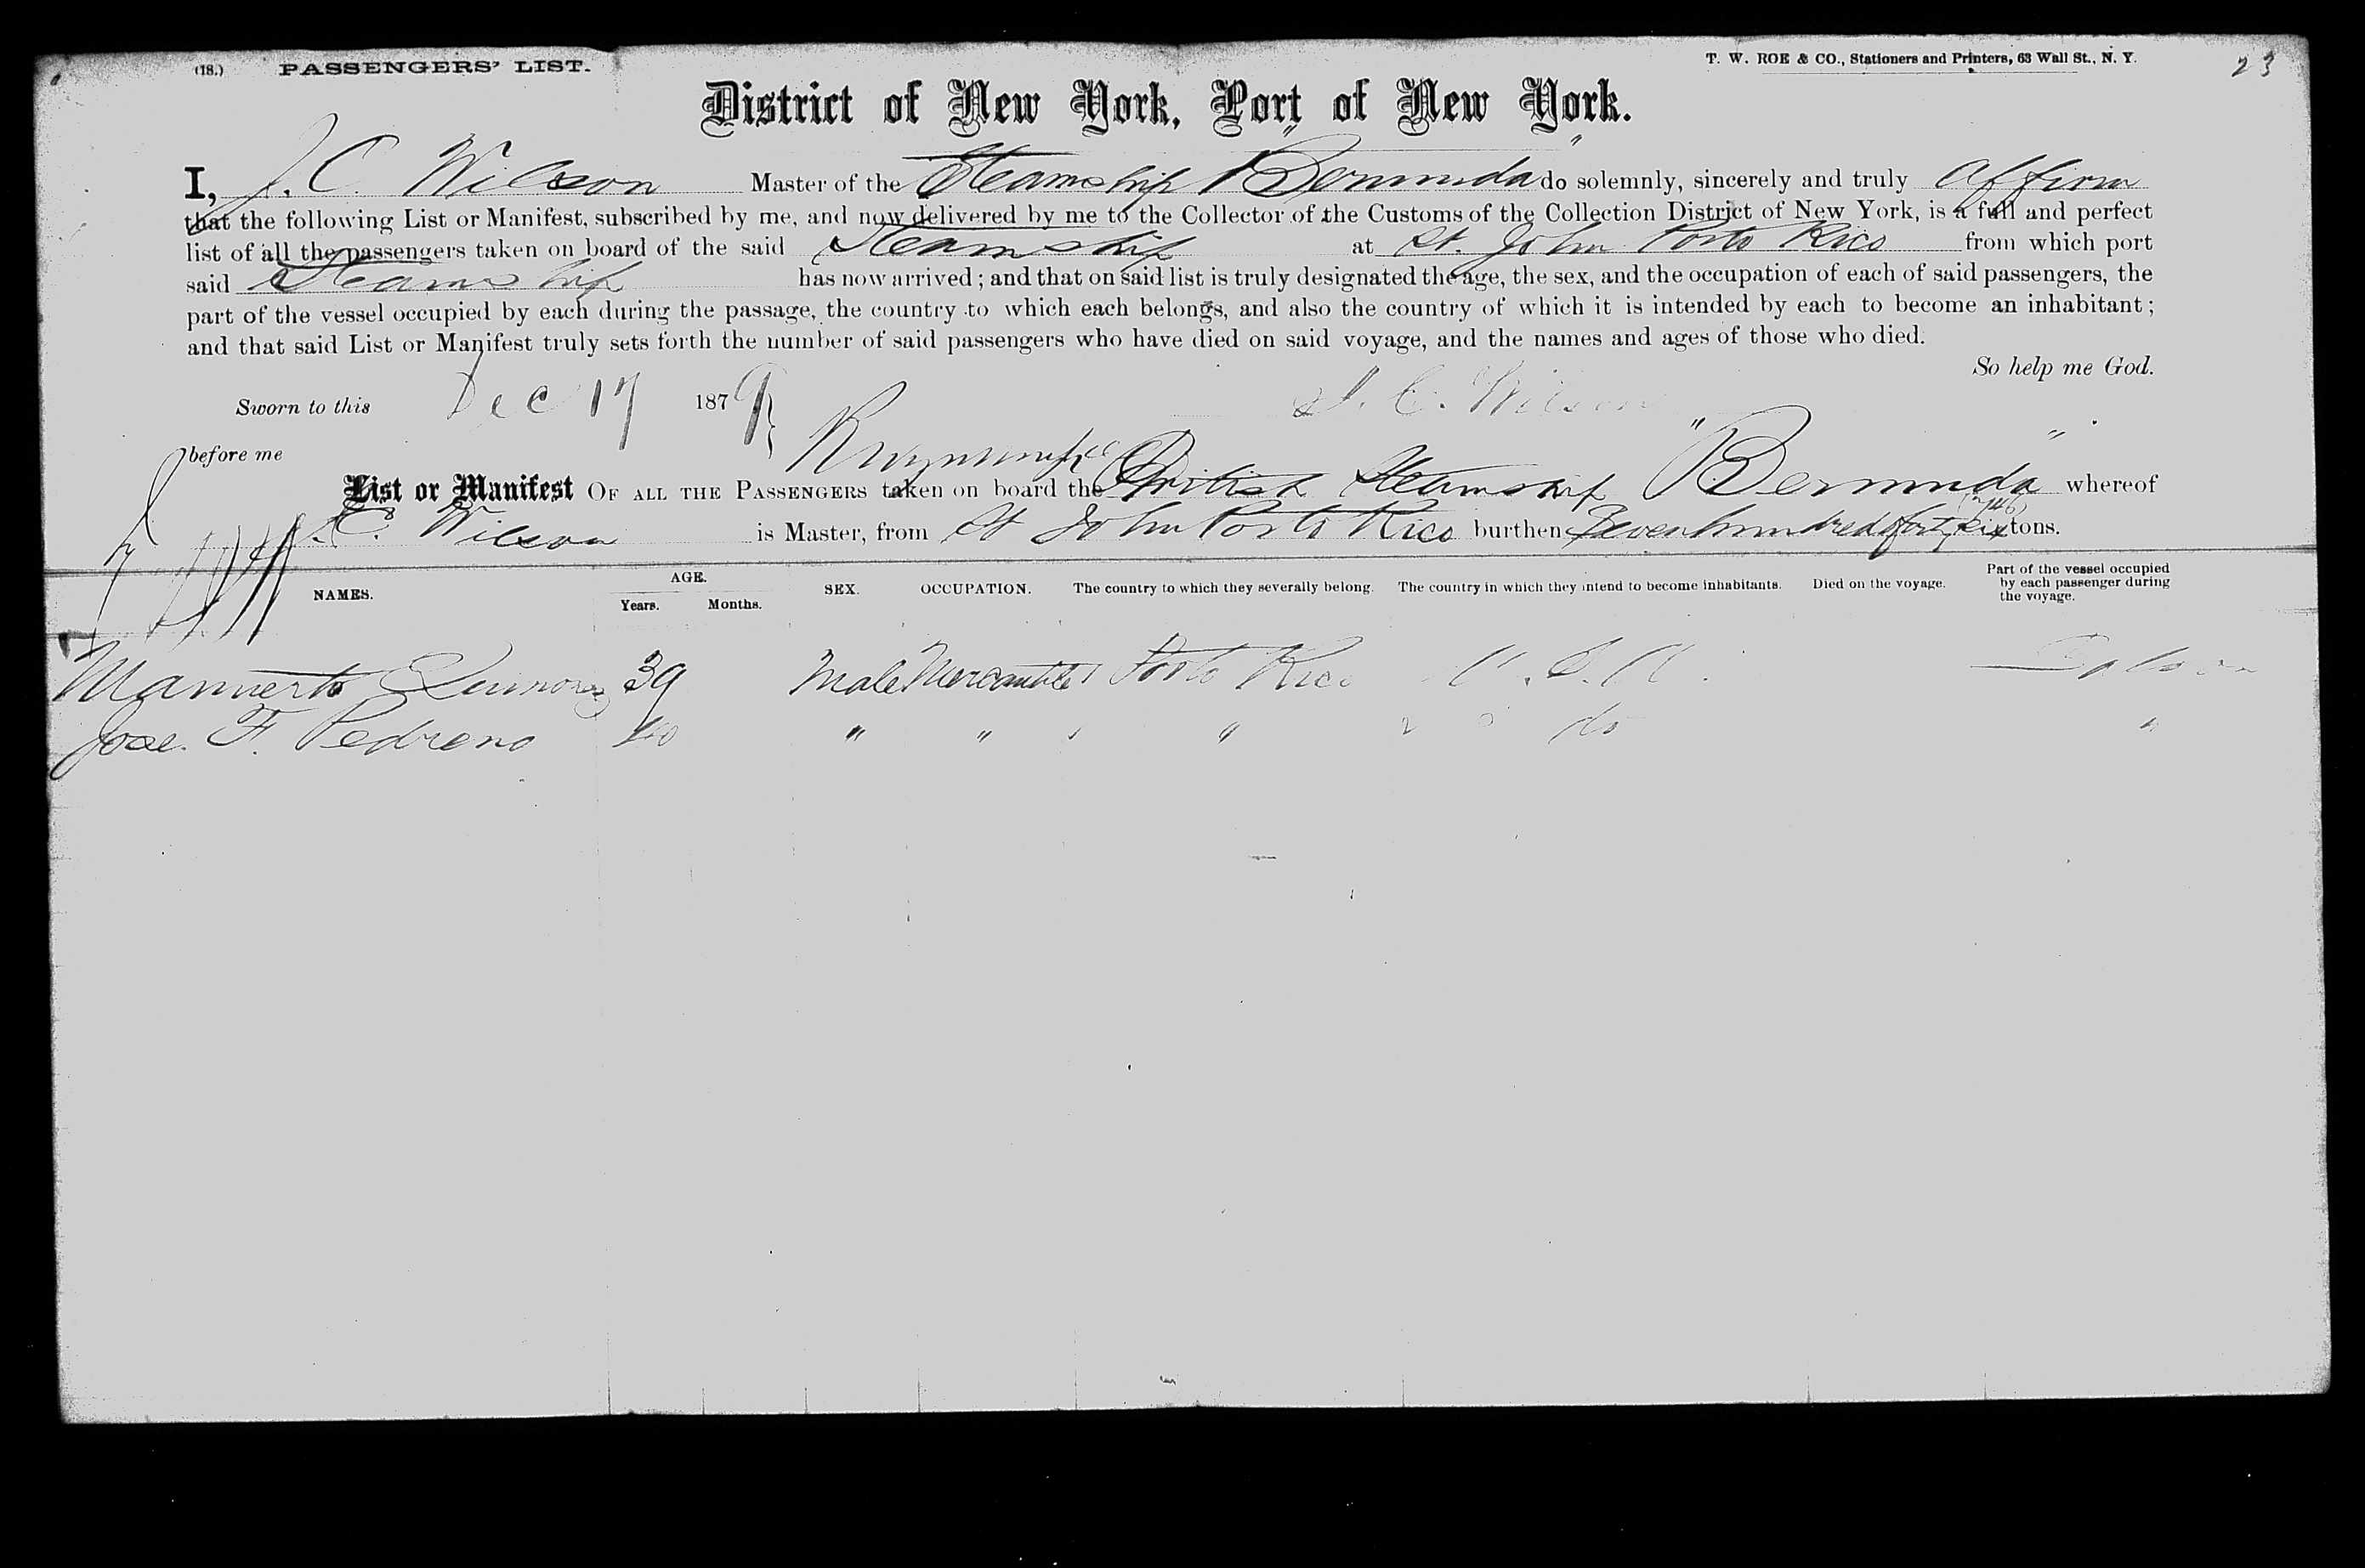 (18.) PASSENGERS' LIST. T. W. ROE & CO., Stationers and Printers, 63 Wall St., N. Y. 23
District of New York, Port of New York.
I, J. C. Wilson Master of the Steamship "Bermuda" do solemnly, sincerely and truly affirm
that the following List or Manifest, subscribed by me, and now delivered by me to the Collector of the Customs of the Collection District of New York, is a full and perfect
list of all the passengers taken on board of the said Steamship at St. John Porto Rico from which port
said Steamship has now arrived; and that on said list is truly designated the age, the sex, and the occupation of each of said passengers, the
part of the vessel occupied by each during the passage, the country to which each belongs, and also the country of which it is intended by each to become an inhabitant;
and that said List or Manifest truly sets forth the number of said passengers who have died on said voyage, and the names and ages of those who died.
So help me God.
Sworn to this Dec 17 1879 J. C. Wilson
before me
List or Manifest OF ALL THE PASSENGERS taken on board the British Steamship "Bermuda" whereof
J. C. Wilson is Master, from St John Porto Rico burthen Seven hundred forty six (746) tons.
NAMES. AGE. Years. Months. SEX. OCCUPATION. The country to which they severally belong. The country in which they intend to become inhabitants. Died on the voyage. Part of the vessel occupied by each passenger during the voyage.
Manuerto Quinones 39 Male Mercantile Porto Rico U.S.A. Saloon
Jose. F. Pedreno 40 " " " do "